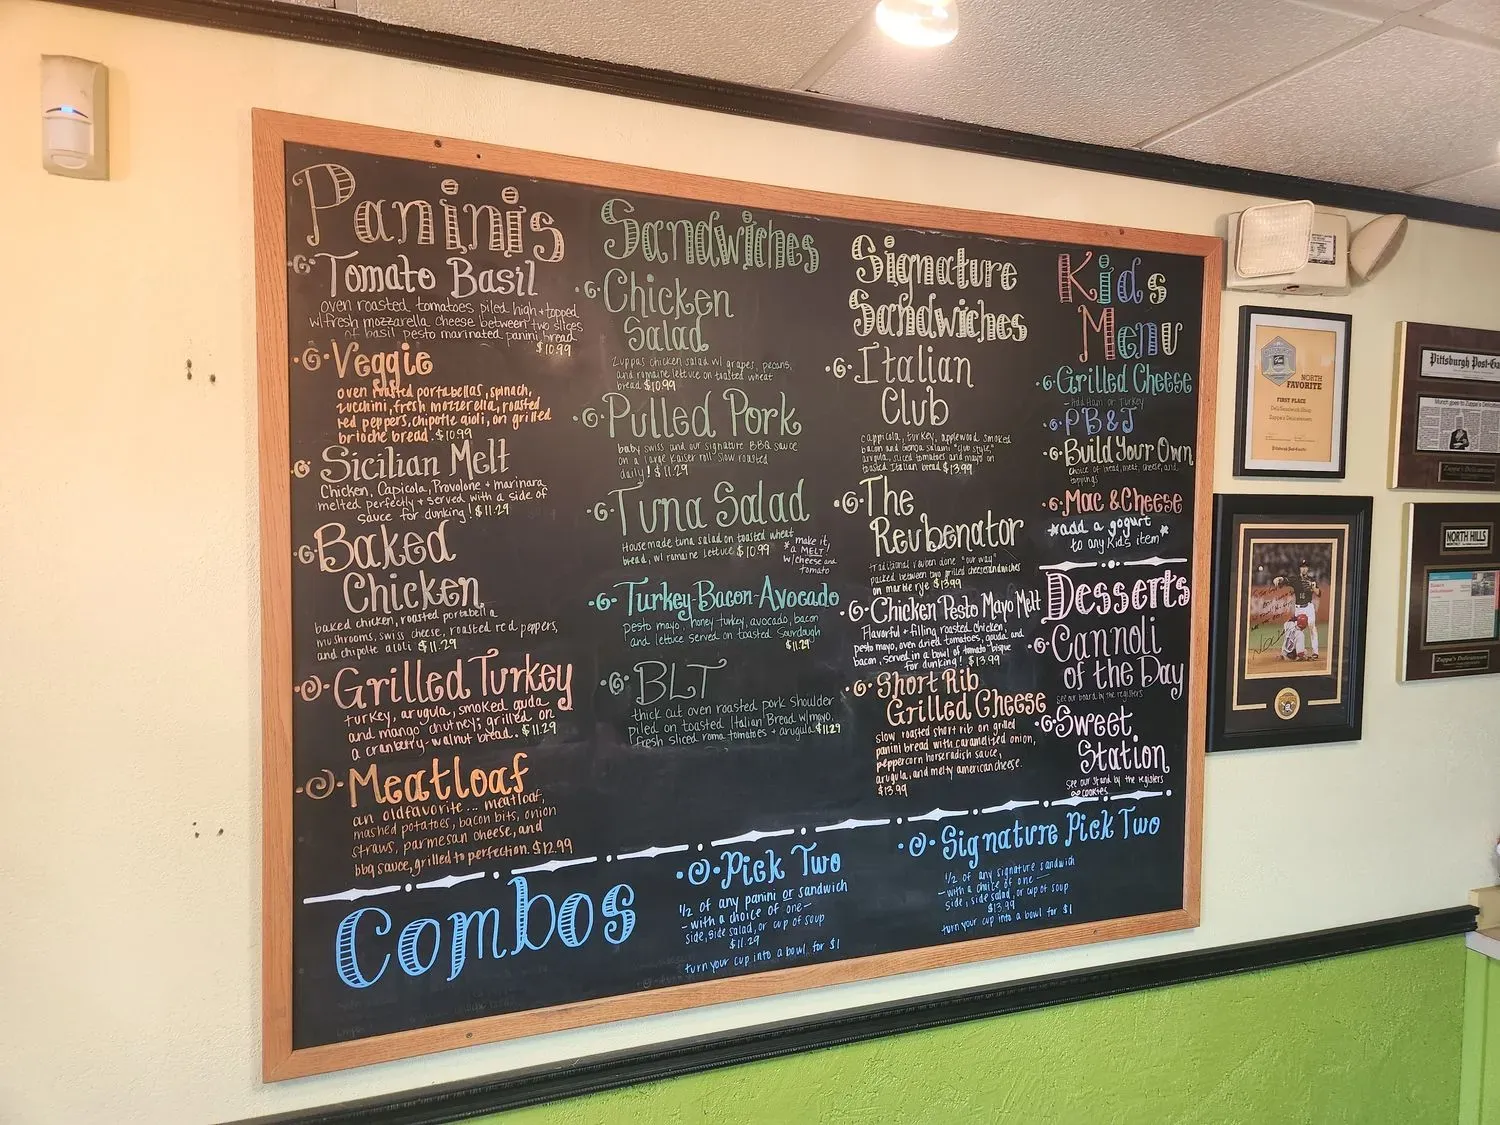 Paninis
Tomato Basil
oven roasted tomatoes piled high + topped
w/fresh mozzarella cheese between two slices
of basil pesto marinated panini bread
$10.99
Veggie
oven roasted portabellas, spinach,
zucchini, fresh mozzerella, roasted
red peppers, chipotle aioli, on grilled
brioche bread. $10.99
Sicilian Melt
Chicken, Capicola, Provolone + marinara
melted perfectly + served with a side of
sauce for dunking! $11.29
Baked
Chicken
baked chicken, roasted portabella
mushrooms, swiss cheese, roasted red peppers,
and chipotle aioli $11.29
Grilled Turkey
turkey, arugula, smoked gouda
and mango chutney; grilled on
a cranberry-walnut bread. $11.29
Meatloaf
an old favorite... meatloaf,
mashed potatoes, bacon bits, onion
straws, parmesan cheese, and
bbq sauce, grilled to perfection. $12.99
Sandwiches
Chicken
Salad
Zuppas chicken salad w/ grapes, pecans,
and romaine lettuce on toasted wheat
bread $10.99
Pulled Pork
baby swiss and our signature BBQ sauce
on a large kaiser roll. Slow roasted
daily! $11.29
Tuna Salad
Housemade tuna salad on toasted wheat
bread, w/ romaine lettuce $10.99
*make it
a MELT!
w/cheese and
tomato
Turkey-Bacon-Avocado
pesto mayo, honey turkey, avocado, bacon
and lettuce served on toasted Sourdough
$11.29
BLT
thick cut oven roasted pork shoulder
piled on toasted Italian Bread w/mayo,
fresh sliced roma tomatoes + arugula $11.29
Signature
Sandwiches
Italian
Club
cappicola, turkey, applewood smoked
bacon and Genoa salami "club style,"
arugula, sliced tomatoes and mayo on
toasted Italian bread $13.99
The
Reubenator
traditional reuben done "our way"
packed between two grilled cheese sandwiches
on marble rye $13.99
Chicken Pesto Mayo Melt
Flavorful + filling roasted chicken,
pesto mayo, oven dried tomatoes, gouda and
bacon, served in a bowl of tomato bisque
for dunking! $13.99
Short Rib
Grilled Cheese
slow roasted short rib on grilled
panini bread with caramelized onion,
peppercorn horseradish sauce,
arugula, and melty american cheese.
$13.99
Kids
Menu
Grilled Cheese
-Add Ham or Turkey
PB&J
Build Your Own
choice of bread, meat, cheese, and
toppings
Mac & Cheese
*add a gogurt
to any Kids item*
Desserts
Cannoli
of the Day
see our board by the registers
Sweet
Station
see our stand by the registers
cookies
Combos
Pick Two
1/2 of any panini or sandwich
-with a choice of one-
side, side salad, or cup of soup
$11.29
turn your cup into a bowl for $1
Signature Pick Two
1/2 of any signature sandwich
-with a choice of one-
side, side salad, or cup of soup
$13.99
turn your cup into a bowl for $1
NORTH
FAVORITE
FIRST PLACE
Deli/Sandwich Shop
Zuppa's Delicatessen
Pittsburgh Post-Gazette
Pittsburgh Post-Ga
Munch goes to Zuppa's Delicatess
NORTH HILLS
Zuppa's Delicatessen